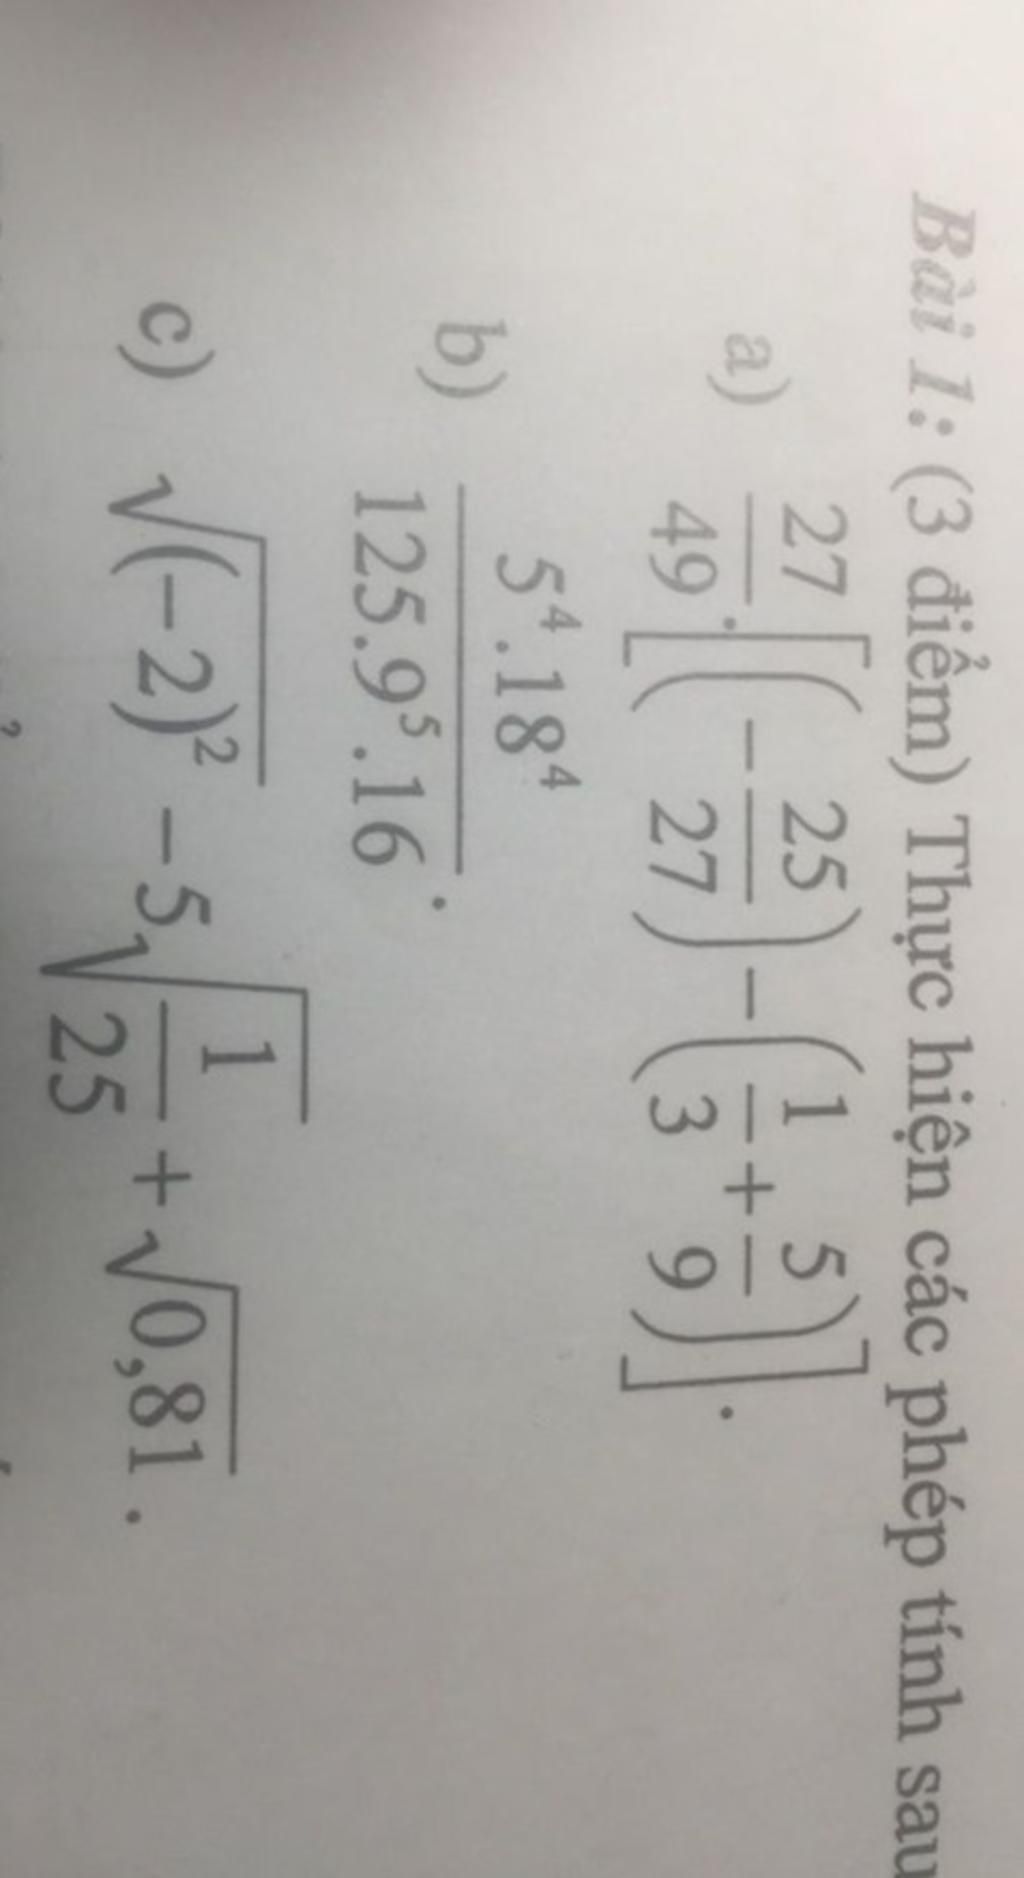 Bài 1: (3 điểm) Thực hiện các phép tính sau
a) 27/49 . [(-25/27) - (1/3 + 5/9)].
b) 5⁴.18⁴ / 125.9⁵.16 .
c) √(-2)² - 5√1/25 + √0,81 .